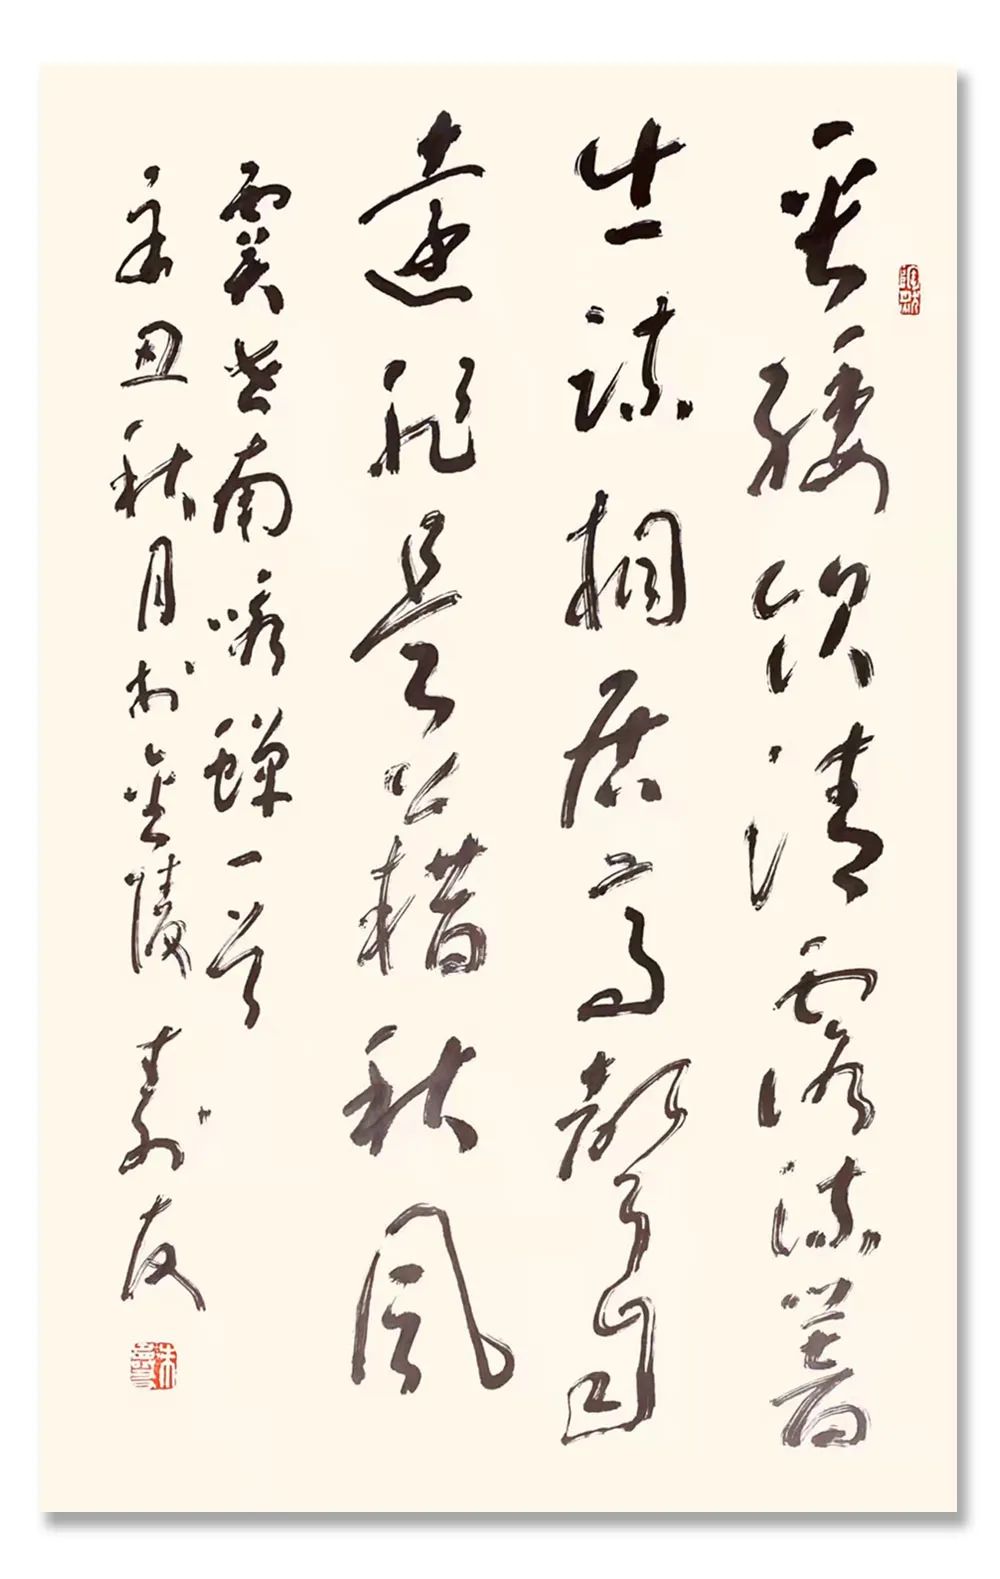 垂緌飲清露流響
出疏桐居高聲自
遠非是藉秋風
虞世南詠蟬一首
辛丑秋月於金陵 壽友
朱壽友